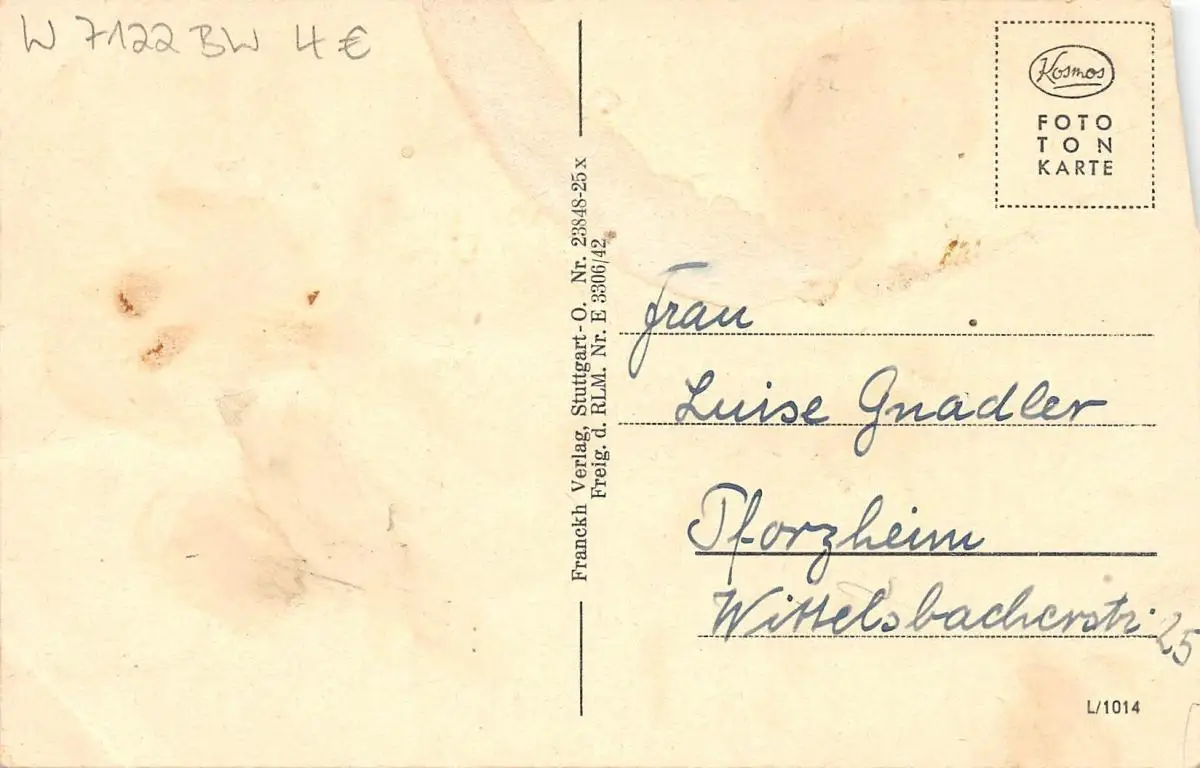 W 7122 BW 4 €
Kosmos
FOTO
TON
KARTE
Franckh Verlag, Stuttgart-O. Nr. 23848-25x
Freig. d. RLM. Nr. E 3306/42
Frau
Luise Gnadler
Pforzheim
Wittelsbacherstr. 25
L/1014